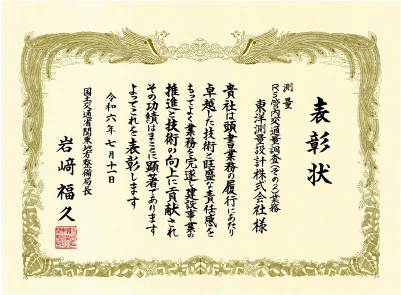 表彰状
測量
R5管内交通量調査(その3)業務
東洋測量設計株式会社様
貴社は頭書業務の履行にあたり
卓越した技術と旺盛な責任感を
もってよく業務を完遂し建設事業の
推進と技術の向上に貢献され
その功績はまことに顕著であります
よってこれを表彰します
令和六年七月十一日
国土交通省関東地方整備局長
岩﨑福久